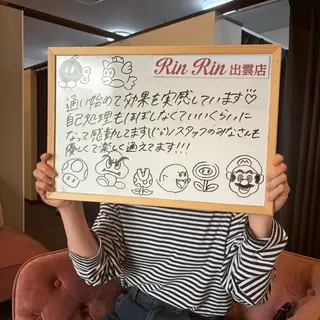 Rin Rin 出雲店
通い始めて効果を実感しています♡
自己処理もほぼしなくていいくらいに
なって感動してます(;;)スタッフのみなさんも
優しくて楽しく通えてます!!!